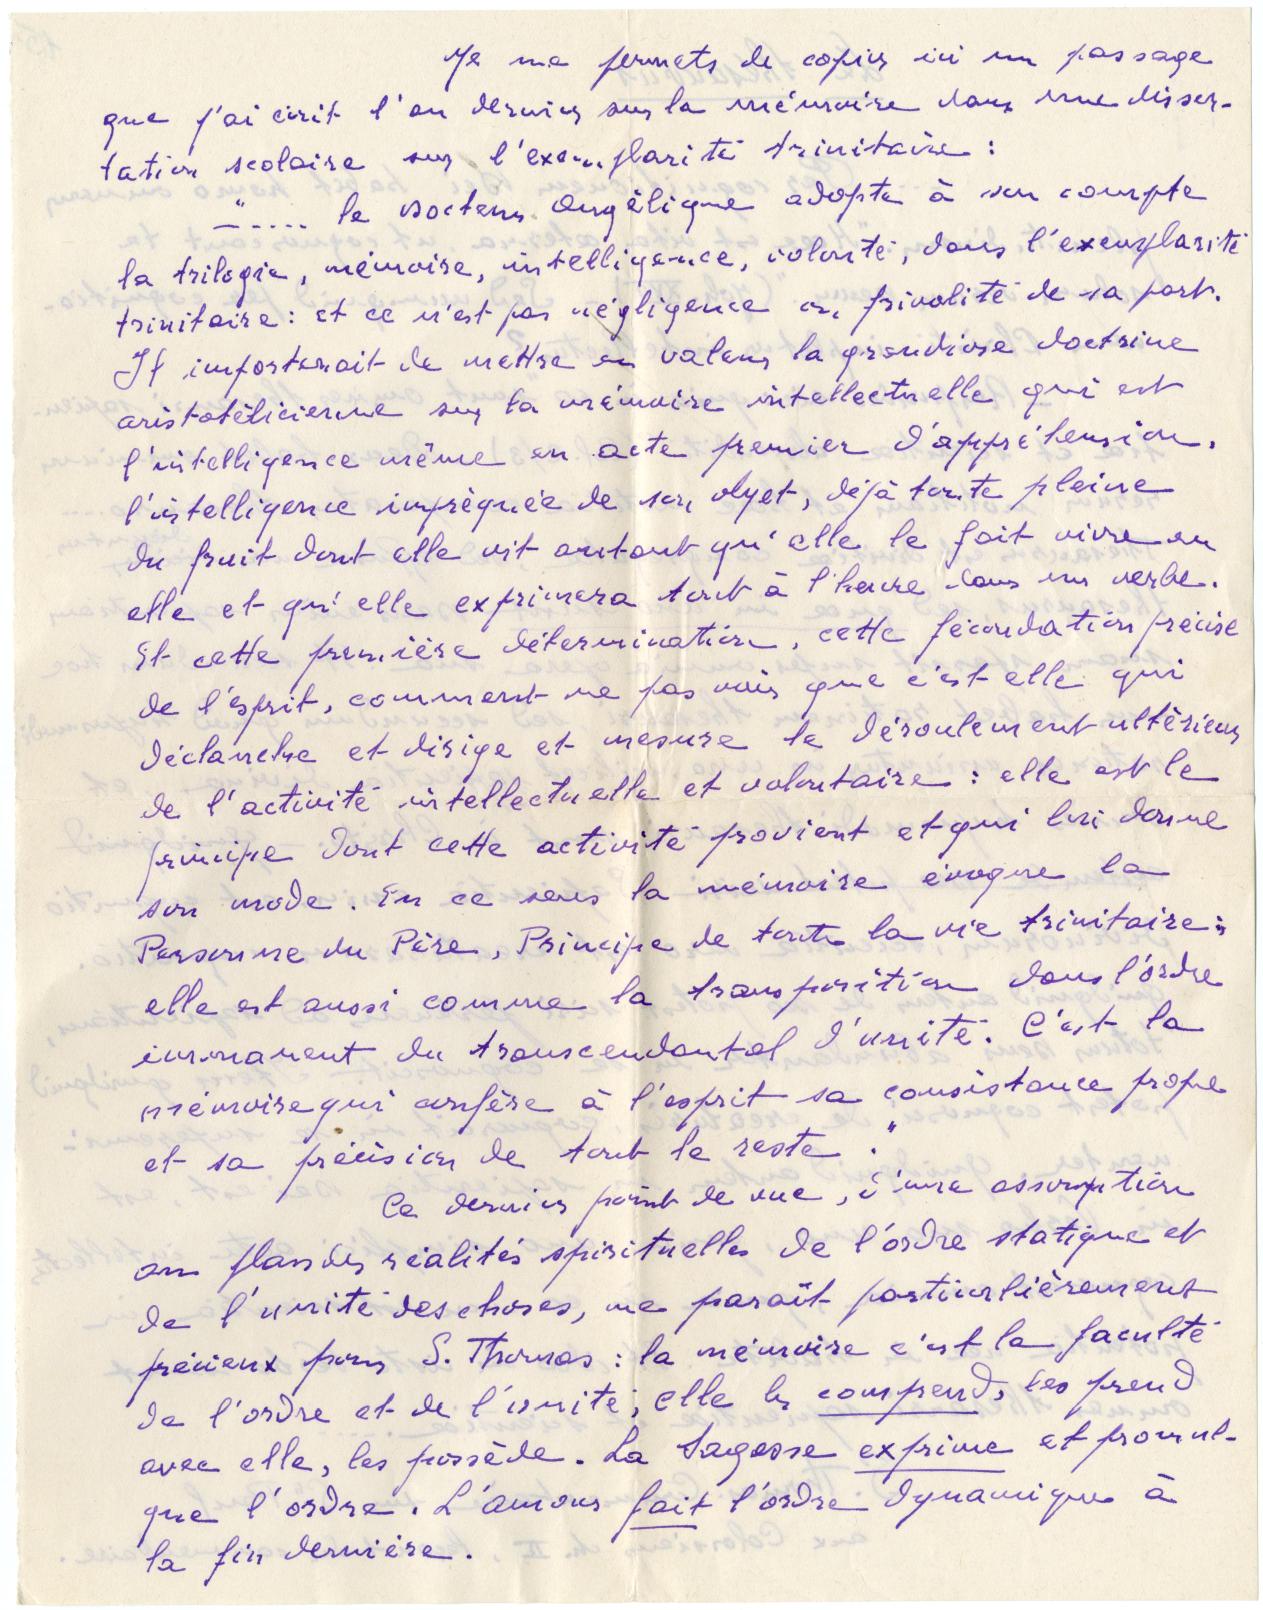 Je me permets de copier ici un passage
que j'ai écrit l'an dernier sur la mémoire dans une disser-
tation scolaire sur l'exemplarité trinitaire :
"..... le Docteur Angélique adopte à son compte
la trilogie, mémoire, intelligence, volonté, dans l'exemplarité
trinitaire : et ce n'est pas négligence ou frivolité de sa part.
Il importerait de mettre en valeur la grandiose doctrine
aristotélicienne sur la mémoire intellectuelle qui est
l'intelligence même en acte premier d'appréhension,
l'intelligence imprégnée de son objet, déjà toute pleine
du fruit dont elle vit autant qu'elle le fait vivre en
elle et qu'elle exprimera tout à l'heure dans un verbe.
Et cette première détermination, cette fécondation précise
de l'esprit, comment ne pas voir que c'est elle qui
déclanche et dirige et mesure le déroulement ultérieur
de l'activité intellectuelle et volontaire : elle est le
principe dont cette activité provient et qui lui donne
son mode. En ce sens la mémoire évoque la
Personne du Père, Principe de toute la vie trinitaire ;
elle est aussi comme la transposition dans l'ordre
immanent du transcendantal d'unité. C'est la
mémoire qui confère à l'esprit sa consistance propre
et sa précision de tout le reste."
Ce dernier point de vue, d'une assomption
au plan des réalités spirituelles de l'ordre statique et
de l'unité des choses, me paraît particulièrement
précieux pour S. Thomas : la mémoire c'est la faculté
de l'ordre et de l'unité ; elle les comprend, les prend
avec elle, les possède. La Sagesse exprime et promul-
gue l'ordre. L'amour fait l'ordre dynamique à
la fin dernière.